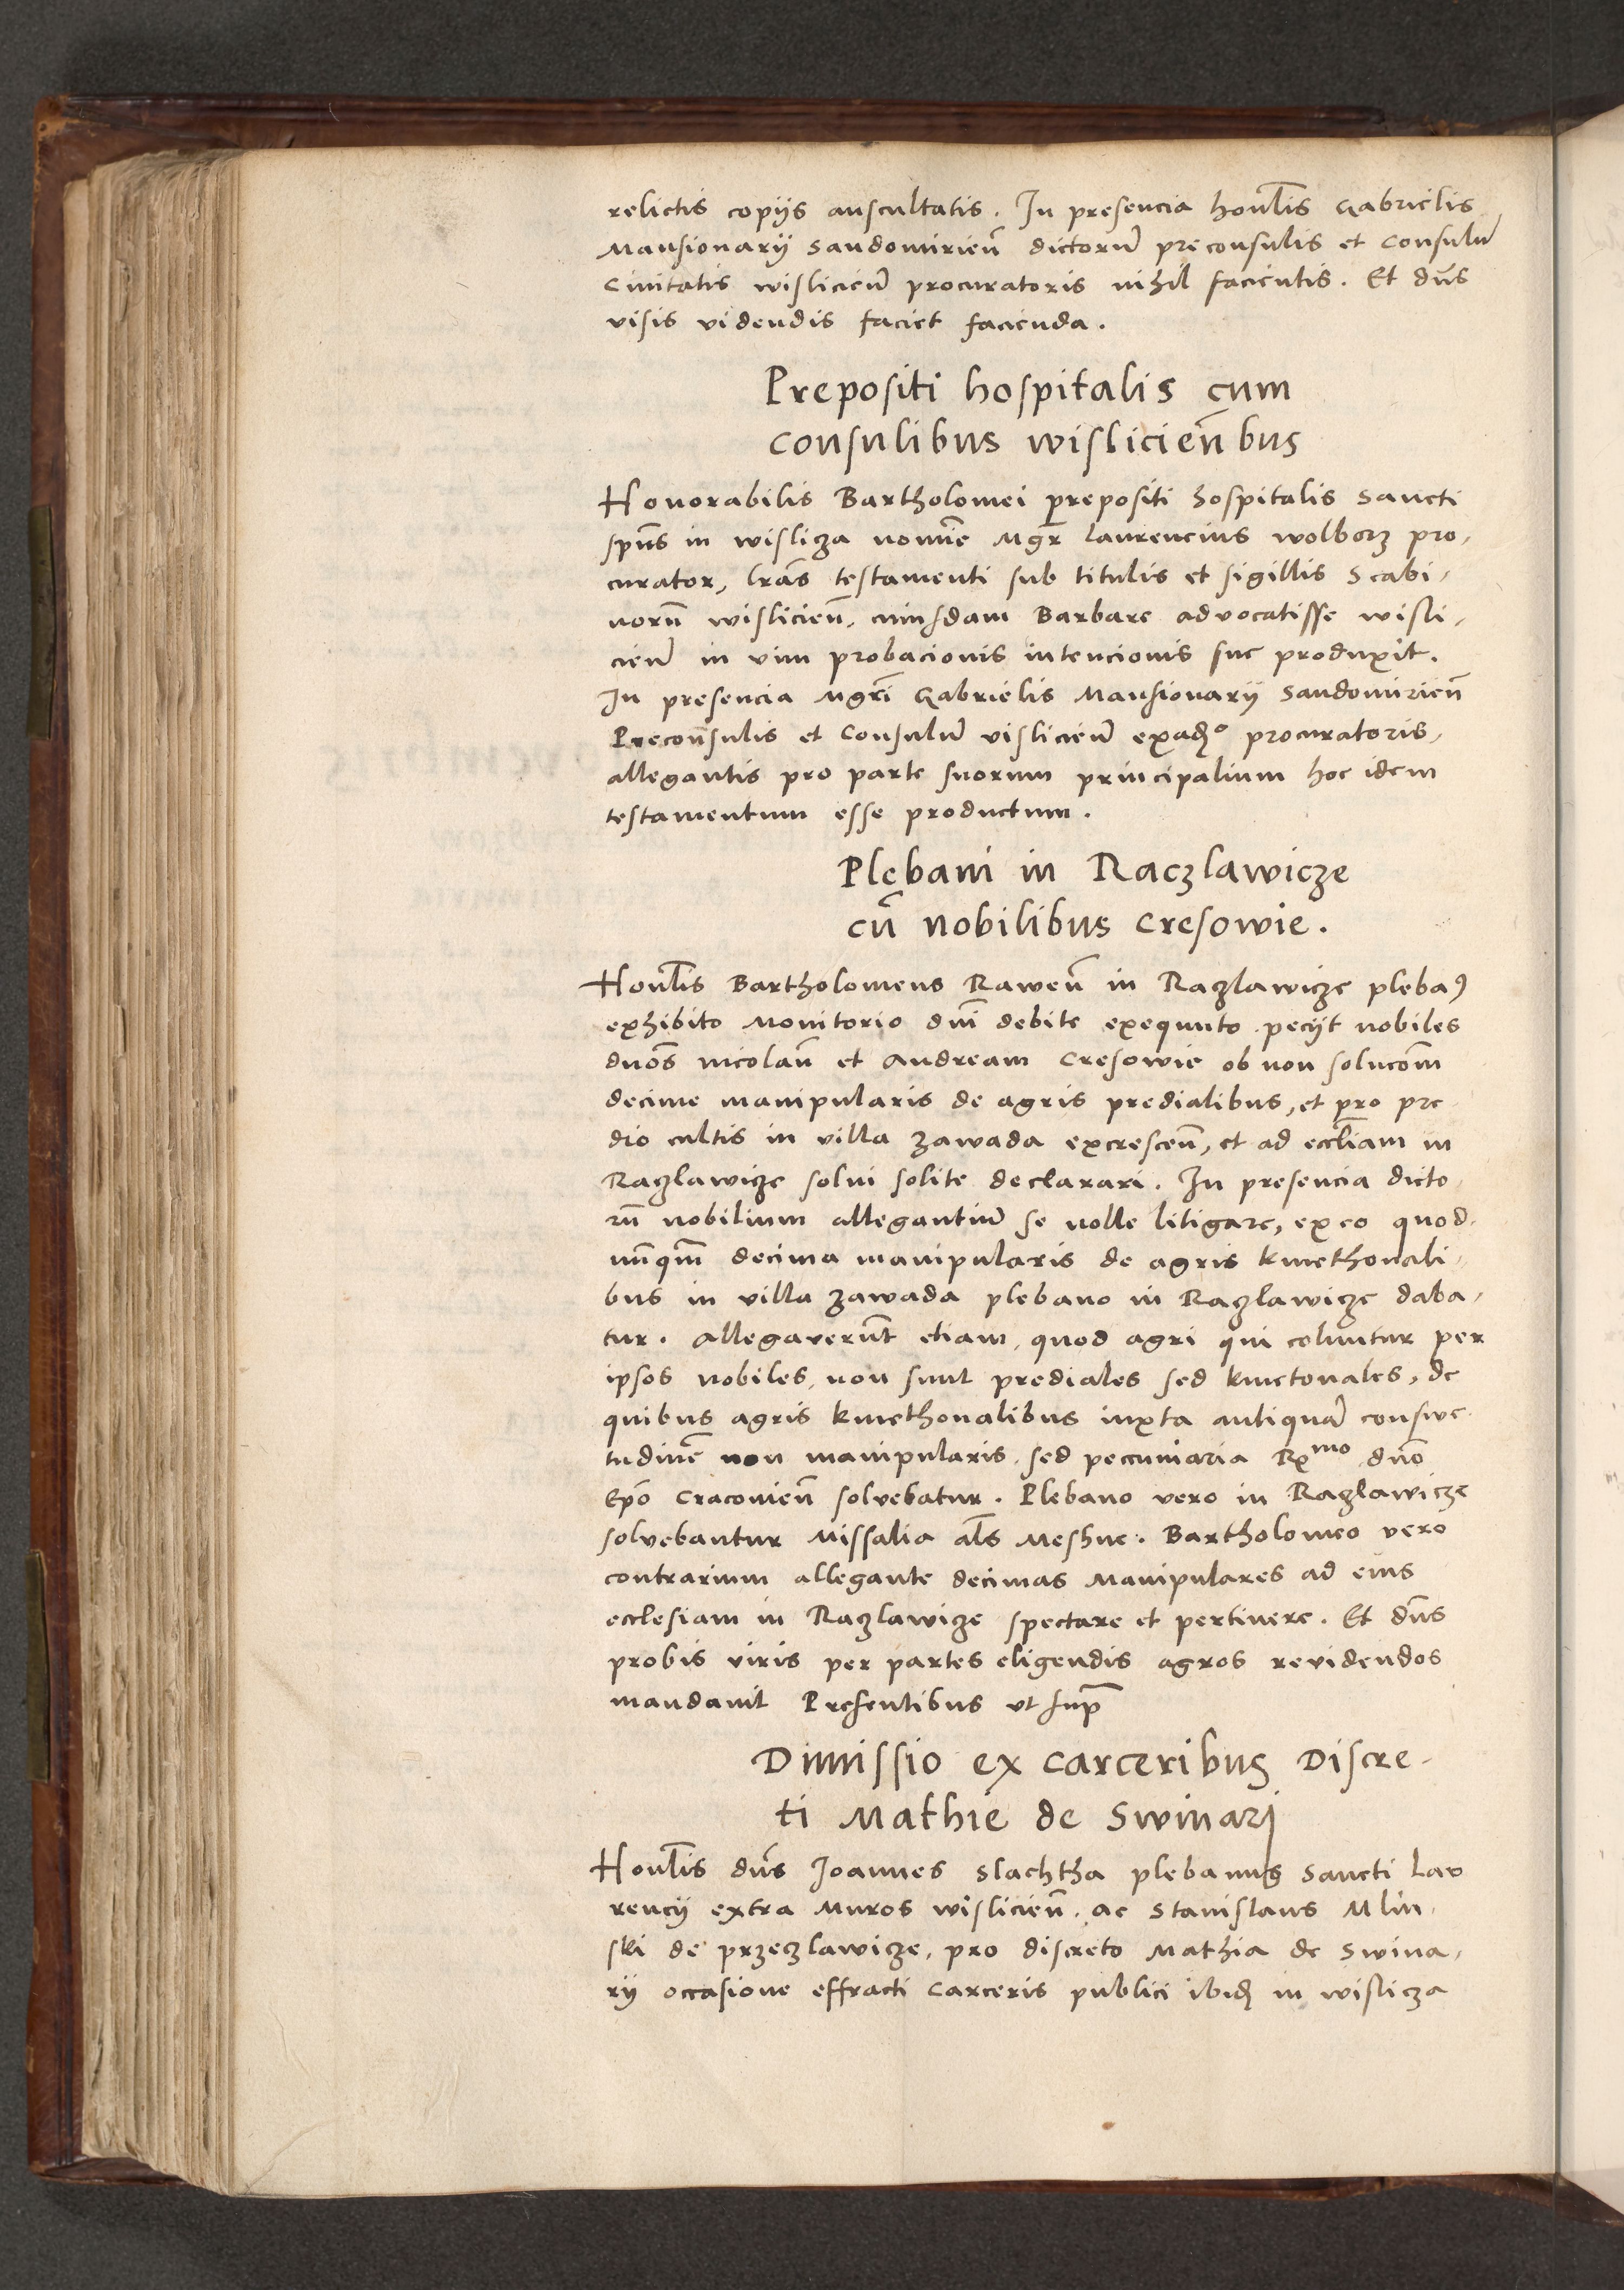 relictis copijs auscultatis. In presencia honlis Gabrielis
Mansionarij Sandomirien̄ dictorum̄ preconsulis et Consulum̄
Civitatis wislicien̄ procuratoris nihil facientis. Et dns
visis videndis faciet facienda.
Prepositi hospitalis cum
Consulibus wislicien̄bus
Honorabilis Bartholomei prepositi hospitalis Sancti
spūs in wislicza nomīe Mgr Laurencius wolborz pro,
curator, lrās testamenti sub titulis et sigillis Scabi,
norū wislicien̄, cuiusdam Barbare advocatisse wisli,
cien̄ in vim probacionis intencionis sue produxit.
In presencia Mgrī Gabrielis Mansionarij Sandomirien̄
Preconsulis et Consulum̄ vislicien̄ ex adꝫᵒ procuratoris,
allegantis pro parte suorum principalium hoc idem
testamentum esse productum.
Plebani in Raczlawicze
cū nobilibus Cresowie.
Honlis Bartholomeus Rawen̄ in Raczlawicze plebaꝰ
exhibito Monitorio dnī debite exequuto pecijt nobiles
dnōs nicolaū et Andream Cresowie ob non solucōm
decime manipularis de agris predialibus, et pro pre
dio cultis in villa zawada excrescen̄, et ad eccl̄iam in
Raczlawicze solui solite declarari. In presencia dicto
rū nobilium allegantium̄ se nolle litigare, ex eo quod
nūqm̄ decima manipularis de agris kmethonali,
bus in villa zawada plebano in Raczlawicze daba,
tur. Allegaverūt etiam, quod agri qui coluntur per
ipsos nobiles, non sunt prediales sed kmetonales, de
quibus agris kmethonalibus iuxta antiquam̄ conswe
tudinē non manipularis, sed peccuniaria Rmo dnō
Epō Cracouien̄ solvebatur. Plebano vero in Raczlawicze
solvebantur Missalia als Meshne. Bartholomeo vero
contrarium allegante decimas Manipulares ad eius
ecclesiam in Raczlawicze spectare et pertinere. Et dns
probis viris per partes eligendis agros revidendos
mandauit Presentibus ut sup̄
Dimissio ex carceribus Discre-
ti Mathie de Swinarj
Honlis dns Joannes Slachtha plebanus Sancti Lav
rencij extra Muros wislicien̄, ac Stanislaus Mlin,
ski de przeczlawicze, pro discreto Mathia de Swina,
rij occasione effracti Carceris publici ibidꝫ in wislicza